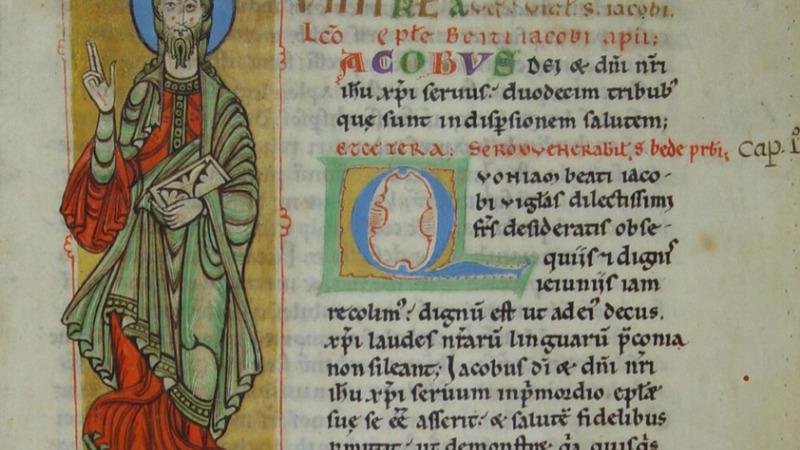 vigł. s. iacobi.
Lc̃o epłe Beati iacobi apłi;
JACOBVS DEI & dñi nr̃i
ihu xp̃i seruus. duodecim tribubꝰ
quę sunt in disp̃sionem salutem;
ETCETERA. SERMO VENERABIL̃ S. bede prbi; Cap. I
QVONIAM beati iaco-
bi vigłas dilectissimi
fr̃s desideratis obse-
quiis ⁊ dignis
ieiuniis iam
recolimꝰ. dignũ est ut ad eiꝰ decus.
xp̃i laudes nr̃arũ linguarũ p̃conia
non sileant; Jacobus dĩ & dñi nr̃i
ihu xp̃i seruum inp̃mordio epłæ
suę se eẽ asserit. & salutẽ fidelibus
mittit. ut demonstret q̃a quisq̃s